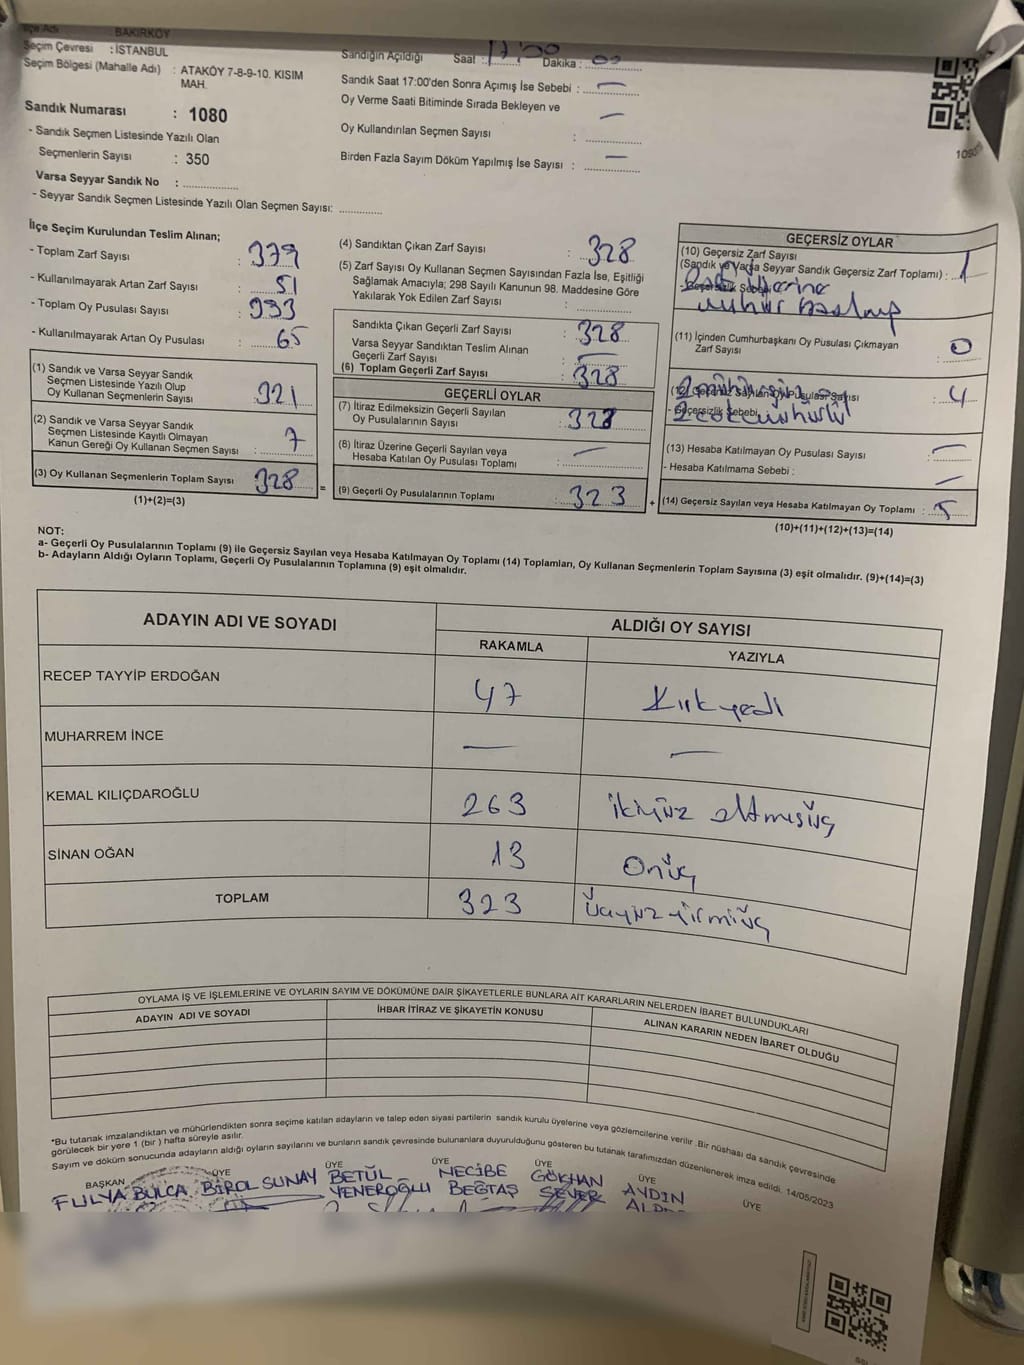 İlçe Adı BAKIRKÖY
Seçim Çevresi : İSTANBUL
Seçim Bölgesi (Mahalle Adı) : ATAKÖY 7-8-9-10. KISIM MAH.
Sandık Numarası : 1080
- Sandık Seçmen Listesinde Yazılı Olan
Seçmenlerin Sayısı : 350
Varsa Seyyar Sandık No : ................
- Seyyar Sandık Seçmen Listesinde Yazılı Olan Seçmen Sayısı: .............
Sandığın Açıldığı Saat : 17:00 Dakika : 00
Sandık Saat 17:00'den Sonra Açımış İse Sebebi : —
Oy Verme Saati Bitiminde Sırada Bekleyen ve
Oy Kullandırılan Seçmen Sayısı : —
Birden Fazla Sayım Döküm Yapılmış İse Sayısı : —
İlçe Seçim Kurulundan Teslim Alınan;
- Toplam Zarf Sayısı : 379
- Kullanılmayarak Artan Zarf Sayısı : 51
- Toplam Oy Pusulası Sayısı : 393
- Kullanılmayarak Artan Oy Pusulası : 65
(1) Sandık ve Varsa Seyyar Sandık
Seçmen Listesinde Yazılı Olup
Oy Kullanan Seçmenlerin Sayısı 321
(2) Sandık ve Varsa Seyyar Sandık
Seçmen Listesinde Kayıtlı Olmayan
Kanun Gereği Oy Kullanan Seçmen Sayısı : 7
(3) Oy Kullanan Seçmenlerin Toplam Sayısı 328
(1)+(2)=(3)
(4) Sandıktan Çıkan Zarf Sayısı : 328
(5) Zarf Sayısı Oy Kullanan Seçmen Sayısından Fazla İse, Eşitliği
Sağlamak Amacıyla; 298 Sayılı Kanunun 98. Maddesine Göre
Yakılarak Yok Edilen Zarf Sayısı :
Sandıkta Çıkan Geçerli Zarf Sayısı : 328
Varsa Seyyar Sandıktan Teslim Alınan
Geçerli Zarf Sayısı : —
(6) Toplam Geçerli Zarf Sayısı : 328
GEÇERLİ OYLAR
(7) İtiraz Edilmeksizin Geçerli Sayılan
Oy Pusulası Sayısı : 323
(8) İtiraz Üzerine Geçerli Sayılan veya
Hesaba Katılan Oy Pusulası Toplamı : —
= (9) Geçerli Oy Pusulalarının Toplamı : 323
GEÇERSİZ OYLAR
(10) Geçersiz Zarf Sayısı
(Sandık ve Varsa Seyyar Sandık Geçersiz Zarf Toplamı) : 1
- Geçersizlik Sebebi
üzerine
mühür basılmış
(11) İçinden Cumhurbaşkanı Oy Pusulası Çıkmayan
Zarf Sayısı : 0
(12) Geçersiz Sayılan Oy Pusulası Sayısı : 4
- Geçersizlik Sebebi
(13) Hesaba Katılmayan Oy Pusulası Sayısı : —
- Hesaba Katılmama Sebebi : —
+ (14) Geçersiz Sayılan veya Hesaba Katılmayan Oy Toplamı : 5
(10)+(11)+(12)+(13)=(14)
NOT:
a- Geçerli Oy Pusulalarının Toplamı (9) ile Geçersiz Sayılan veya Hesaba Katılmayan Oy Toplamı (14) Toplamları, Oy Kullanan Seçmenlerin Toplam Sayısına (3) eşit olmalıdır. (9)+(14)=(3)
b- Adayların Aldığı Oyların Toplamı, Geçerli Oy Pusulalarının Toplamına (9) eşit olmalıdır.
ADAYIN ADI VE SOYADI ALDIĞI OY SAYISI
RAKAMLA YAZIYLA
RECEP TAYYİP ERDOĞAN 47 Kırkyedi
MUHARREM İNCE — —
KEMAL KILIÇDAROĞLU 263 ikiyüz altmışüç
SİNAN OĞAN 13 Onüç
TOPLAM 323 üçyüz yirmiüç
OYLAMA İŞ VE İŞLEMLERİNE VE OYLARIN SAYIM VE DÖKÜMÜNE DAİR ŞİKAYETLERLE BUNLARA AİT KARARLARIN NELERDEN İBARET BULUNDUKLARI
ADAYIN ADI VE SOYADI İHBAR İTİRAZ VE ŞİKAYETİN KONUSU ALINAN KARARIN NEDEN İBARET OLDUĞU
*Bu tutanak imzalandıktan ve mühürlendikten sonra seçime katılan adayların ve talep eden siyasi partilerin sandık kurulu üyelerine veya gözlemcilerine verilir. Bir nüshası da sandık çevresinde
görülecek bir yere 1 (bir) hafta süreyle asılır.
Sayım ve döküm sonucunda adayların aldığı oyların sayılarını ve bunların sandık çevresinde bulunanlara duyurulduğunu gösteren bu tutanak tarafımızdan düzenlenerek imza edildi. 14/05/2023
BAŞKAN ÜYE ÜYE ÜYE ÜYE ÜYE ÜYE
FULYA BULCA BİROL SUNAY BETÜL YENEROĞLU NECİBE BEĞTAŞ GÖKHAN SEVER AYDIN